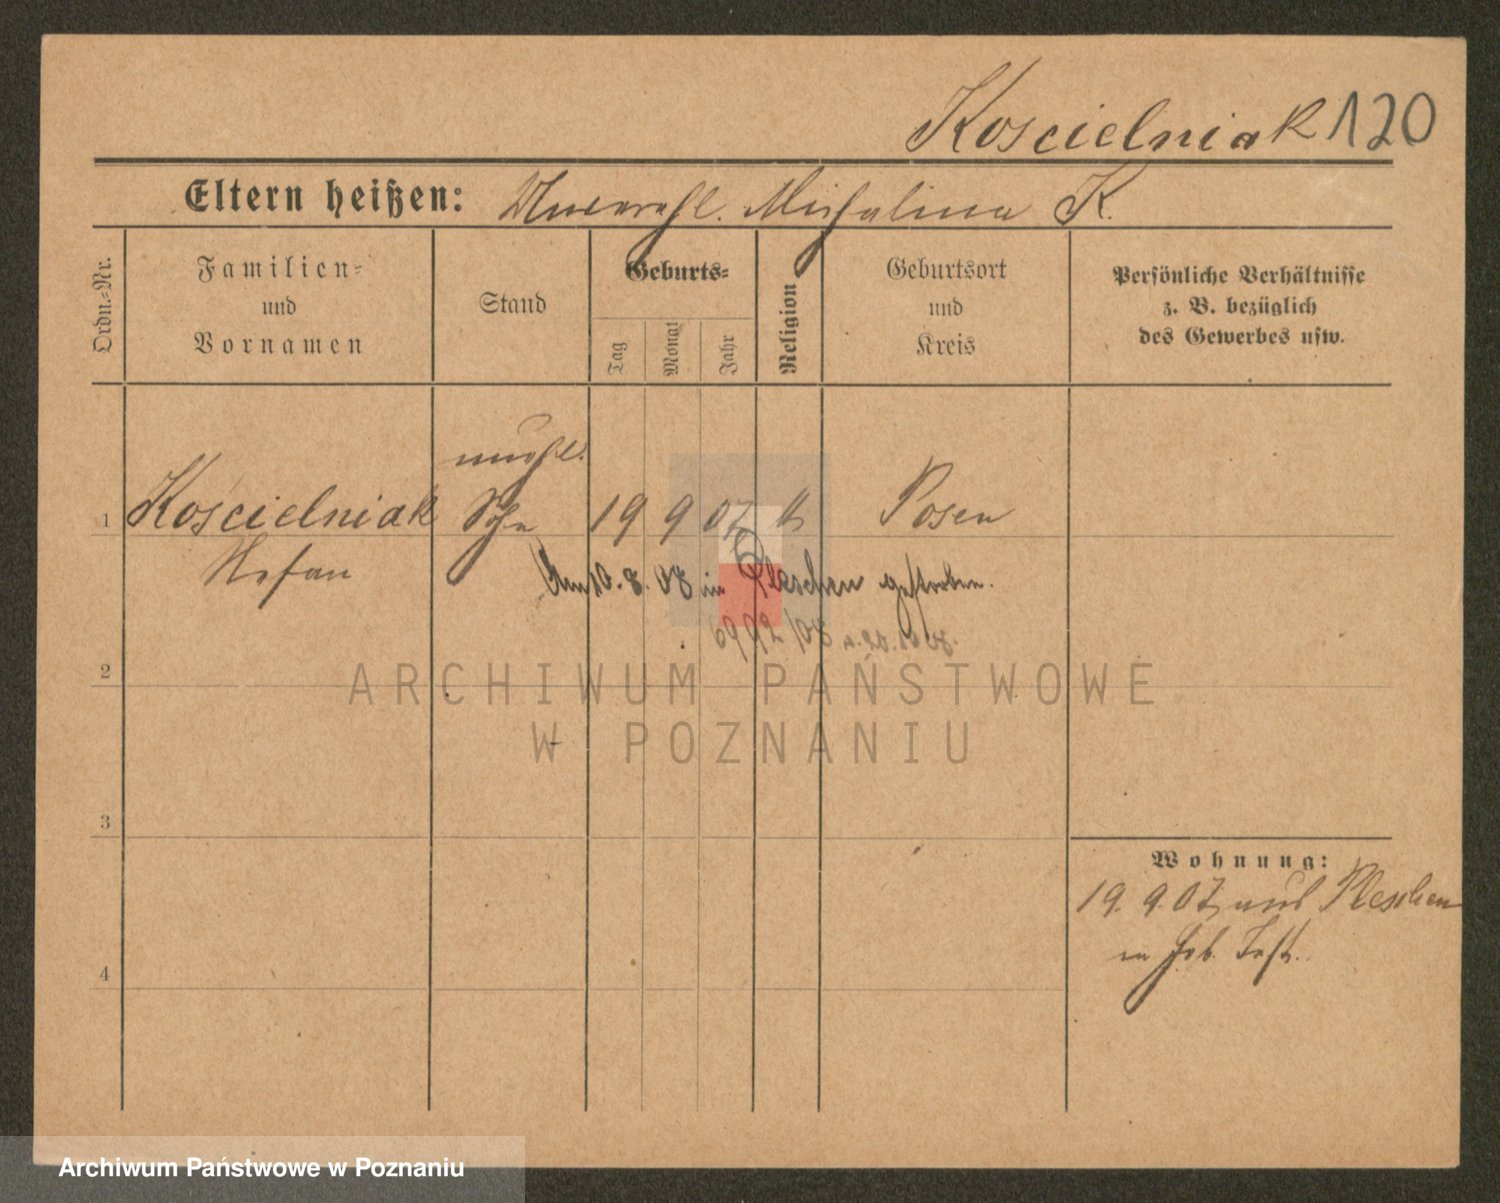 Koscielniak 120
Eltern heißen: Unverehl. Michalina K.
Ordn.-Nr.
Familien-
und
Vornamen
Stand
Geburts-
Tag
Monat
Jahr
Religion
Geburtsort
und
Kreis
Persönliche Verhältnisse
z. B. bezüglich
des Gewerbes usw.
unehl.
1 Koscielniak Sohn 19 9 07 k Posen
Stefan
Am 10. 8. 08 in Pleschen gestorben.
2
ARCHIWUM PAŃSTWOWE
W POZNANIU
3
Wohnung:
19. 9. 07 aus Pleschen
4
Archiwum Państwowe w Poznaniu